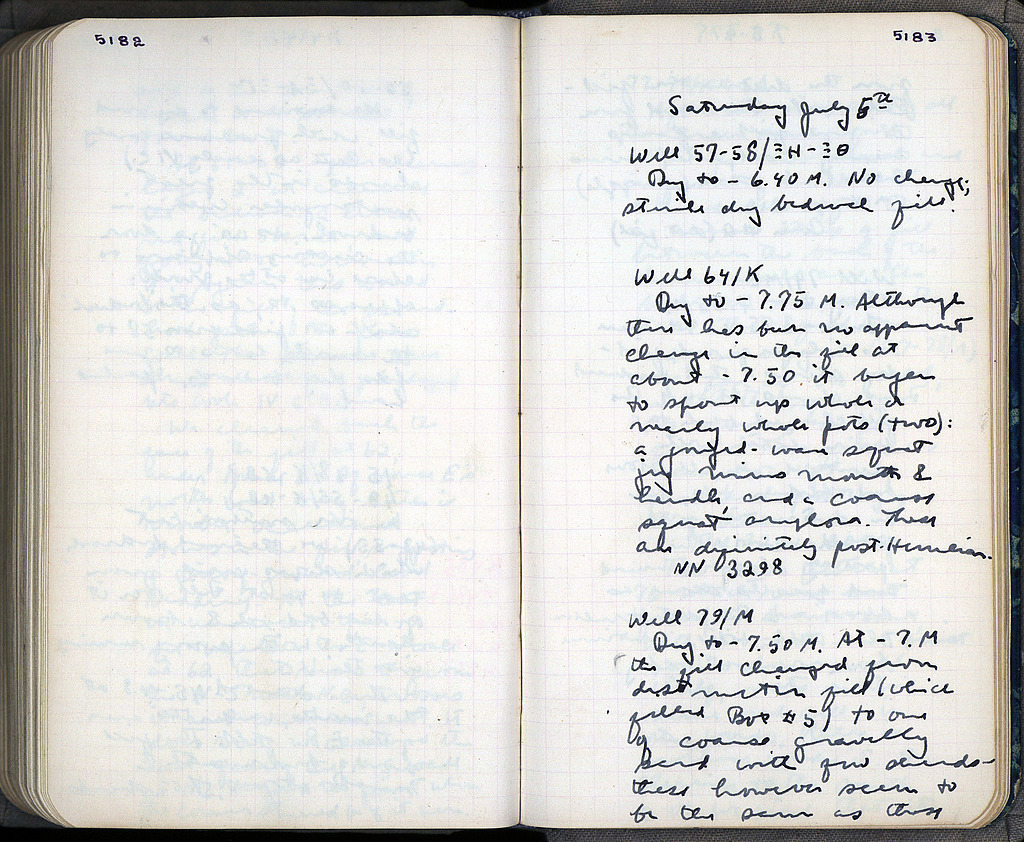 5182
5183
Saturday July 5th
Well 57-58/ΞΗ-ΞΘ
Dug to - 6.40 M. No change;
sterile dug bedrock fill.
Well 64/Κ
Dug to - 7.75 M. Although
there has been no apparent
change in the fill at
about - 7.50 it began
to spout up whole or
nearly whole pots (two):
a gouged-ware squat
jug minus mouth &
handle, and a coarse
squat amphora. These
are definitely post-Herulian.
NN 3298
Well 79/Μ
Dug to - 7.50 M. At - 7. M
the fill changed from
destruction fill (which
filled Box #5) to one
of coarse gravelly
sand with few sherds-
these however seem to
be the same as those